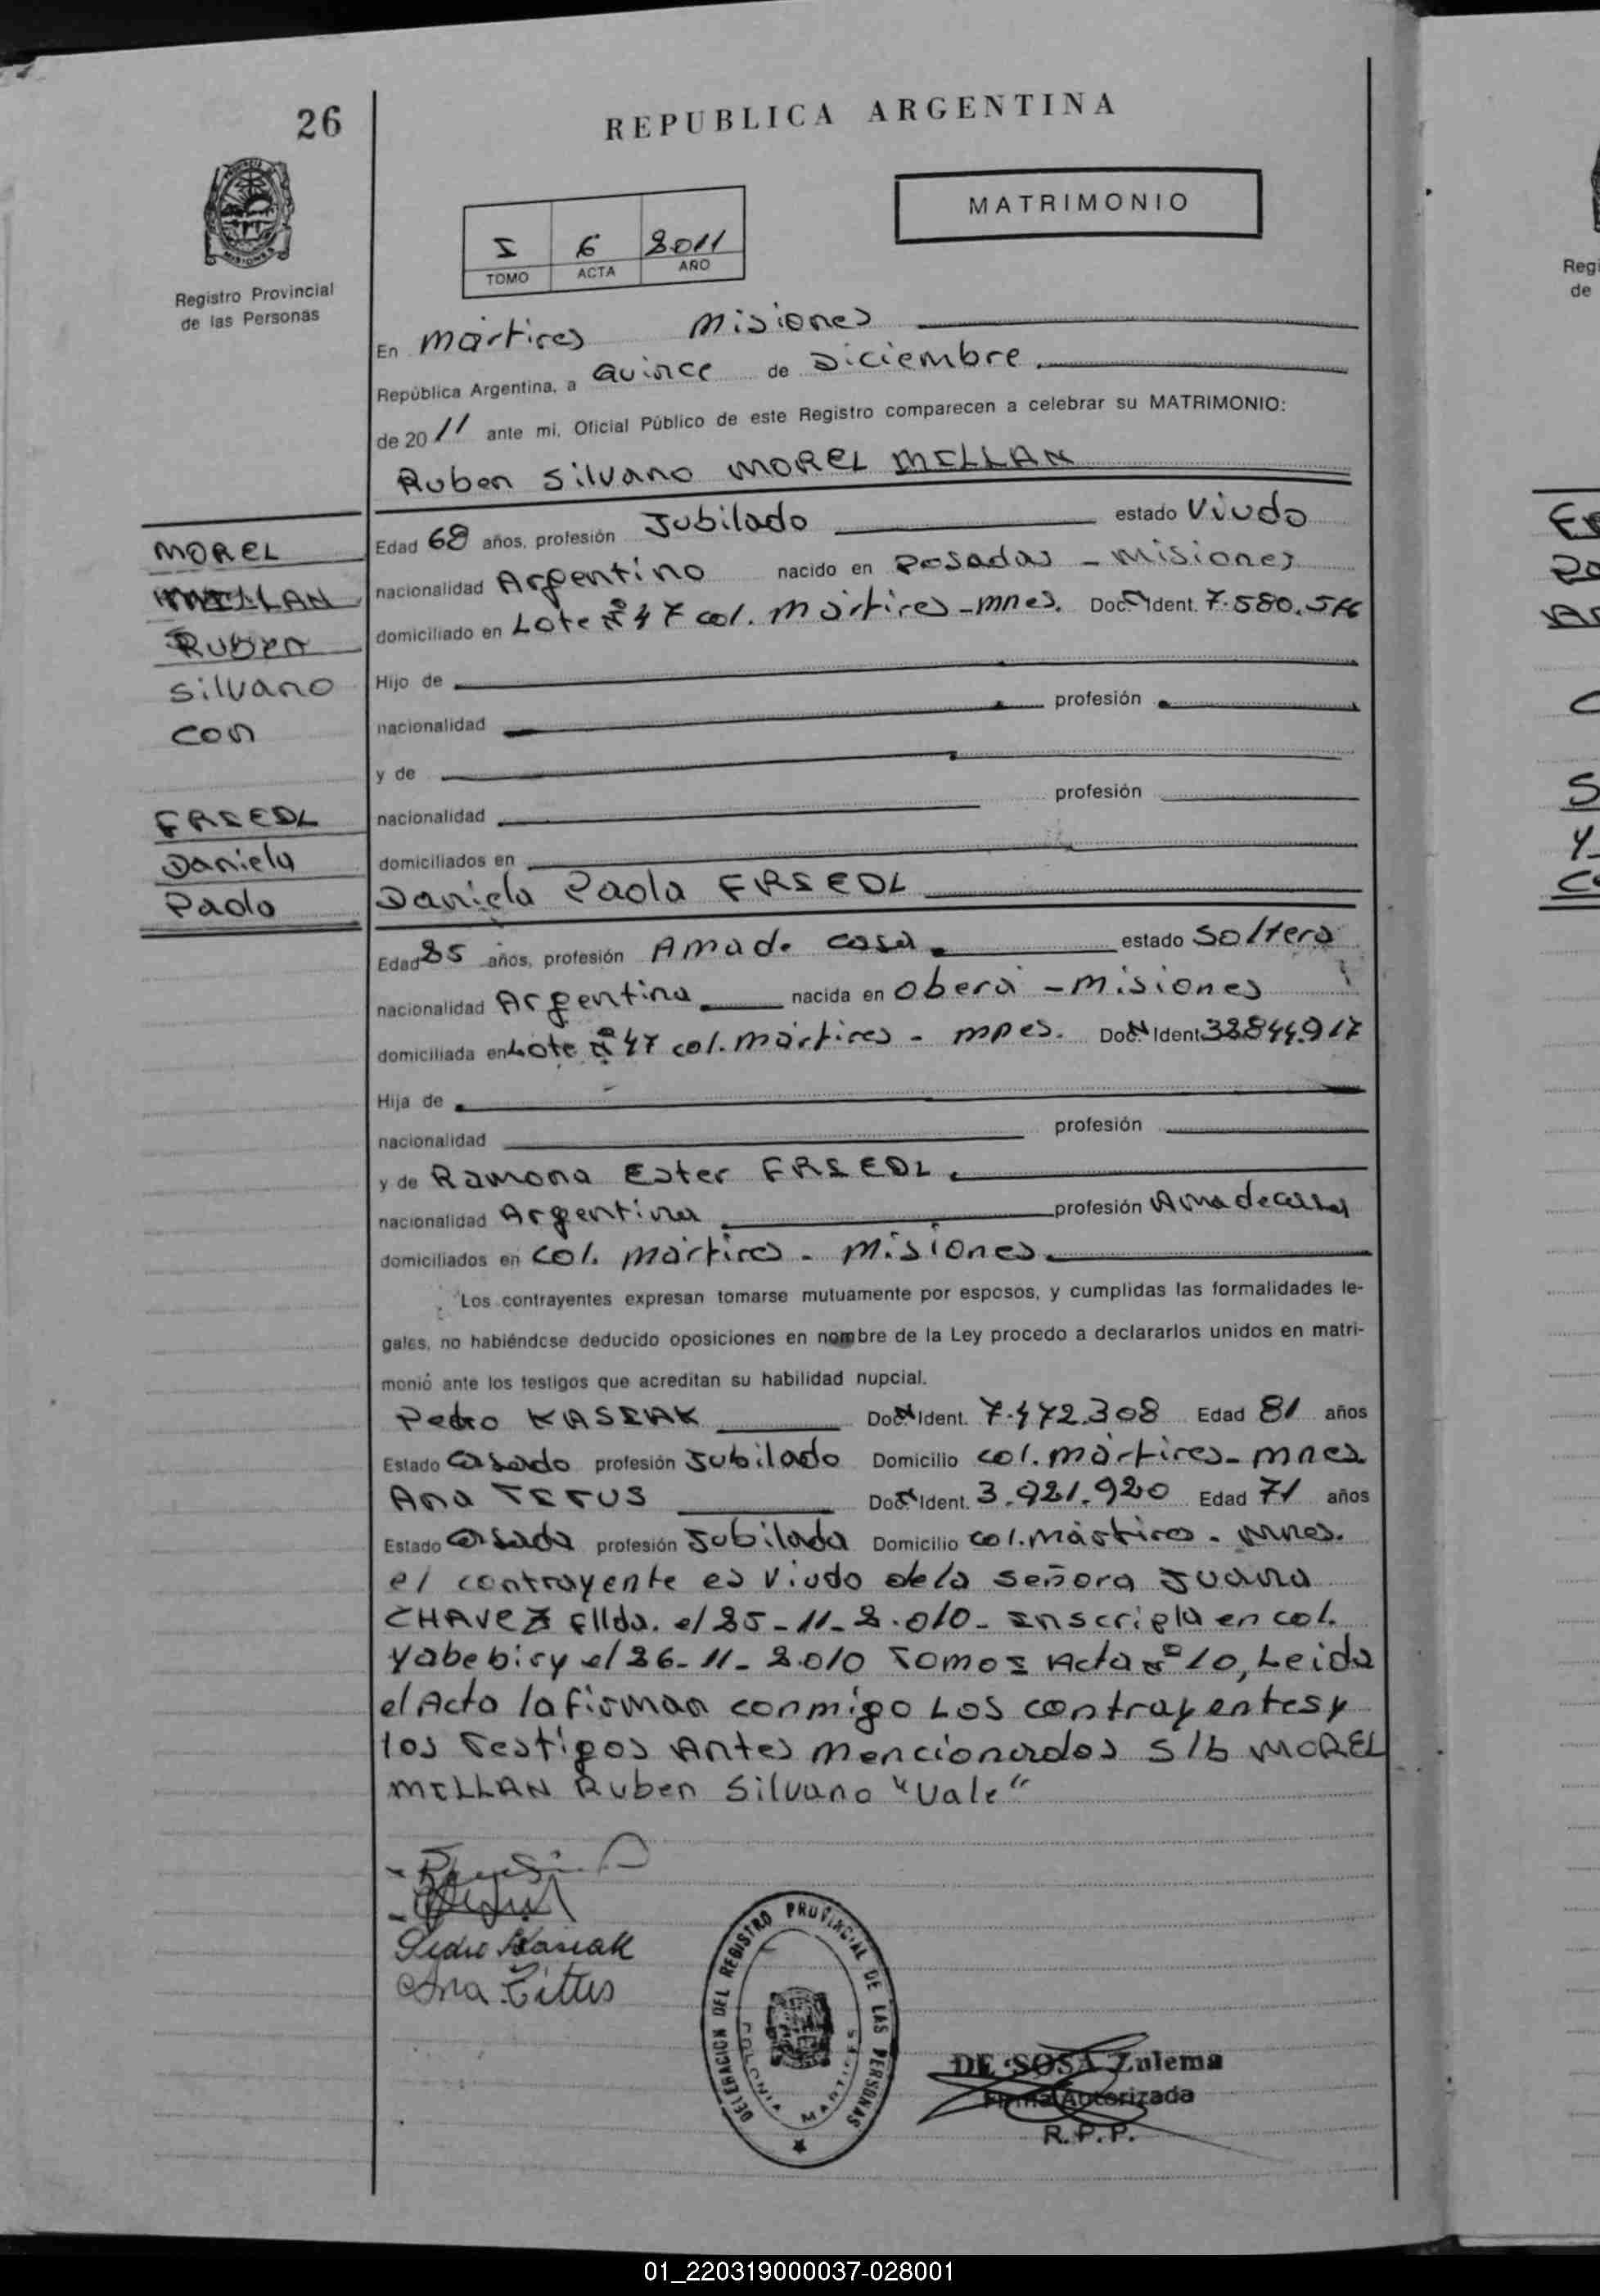 26
REPUBLICA ARGENTINA
MATRIMONIO
I 6 2011
TOMO ACTA AÑO
Registro Provincial
de las Personas
En Mártires Misiones
República Argentina, a Quince de Diciembre
de 2011 ante mi, Oficial Público de este Registro comparecen a celebrar su MATRIMONIO:
Ruben Silvano MOREL MILLAN
MOREL
MILLAN
Ruben
Silvano
con
FRIEDL
Daniela
Paola
Edad 68 años, profesión Jubilado estado Viudo
nacionalidad Argentino nacido en Posadas - Misiones
domiciliado en Lote Nº 47 col. Mártires - Mnes. Doc. N Ident. 7.580.516
Hijo de
nacionalidad profesión
y de
nacionalidad profesión
domiciliados en
Daniela Paola FRIEDL
Edad 25 años, profesión Ama de casa estado Soltera
nacionalidad Argentina nacida en Oberá - Misiones
domiciliada en Lote Nº 47 col. Mártires - Mnes. Doc. N Ident. 32844.917
Hija de
nacionalidad profesión
y de Ramona Ester FRIEDL
nacionalidad Argentina profesión Ama de casa
domiciliados en col. Mártires - Misiones
Los contrayentes expresan tomarse mutuamente por esposos, y cumplidas las formalidades le-
gales, no habiéndose deducido oposiciones en nombre de la Ley procedo a declararlos unidos en matri-
monió ante los testigos que acreditan su habilidad nupcial.
Pedro KASIAK Doc. N Ident. 7.472.308 Edad 81 años
Estado Casado profesión Jubilado Domicilio col. Mártires - Mnes.
Ana TITUS Doc. N Ident. 3.921.920 Edad 71 años
Estado Casada profesión Jubilada Domicilio col. Mártires - Mnes.
el contrayente es Viudo de la Señora Juana
CHAVEZ Fllda. el 25-11-2.010- Inscripta en col.
Yabebiry el 26-11-2.010 Tomo I Acta Nº 10, Leida
el Acta la firman conmigo Los contrayentes y
los Testigos Antes mencionados S/b MOREL
MILLAN Ruben Silvano "Vale"
Pedro Kasiak
Ana Titus
DELEGACION DEL REGISTRO PROVINCIAL DE LAS PERSONAS
COLONIA MARTIRES
DE SOSA Zulema
Firma Autorizada
R.P.P.
Regi
de
01_220319000037-028001